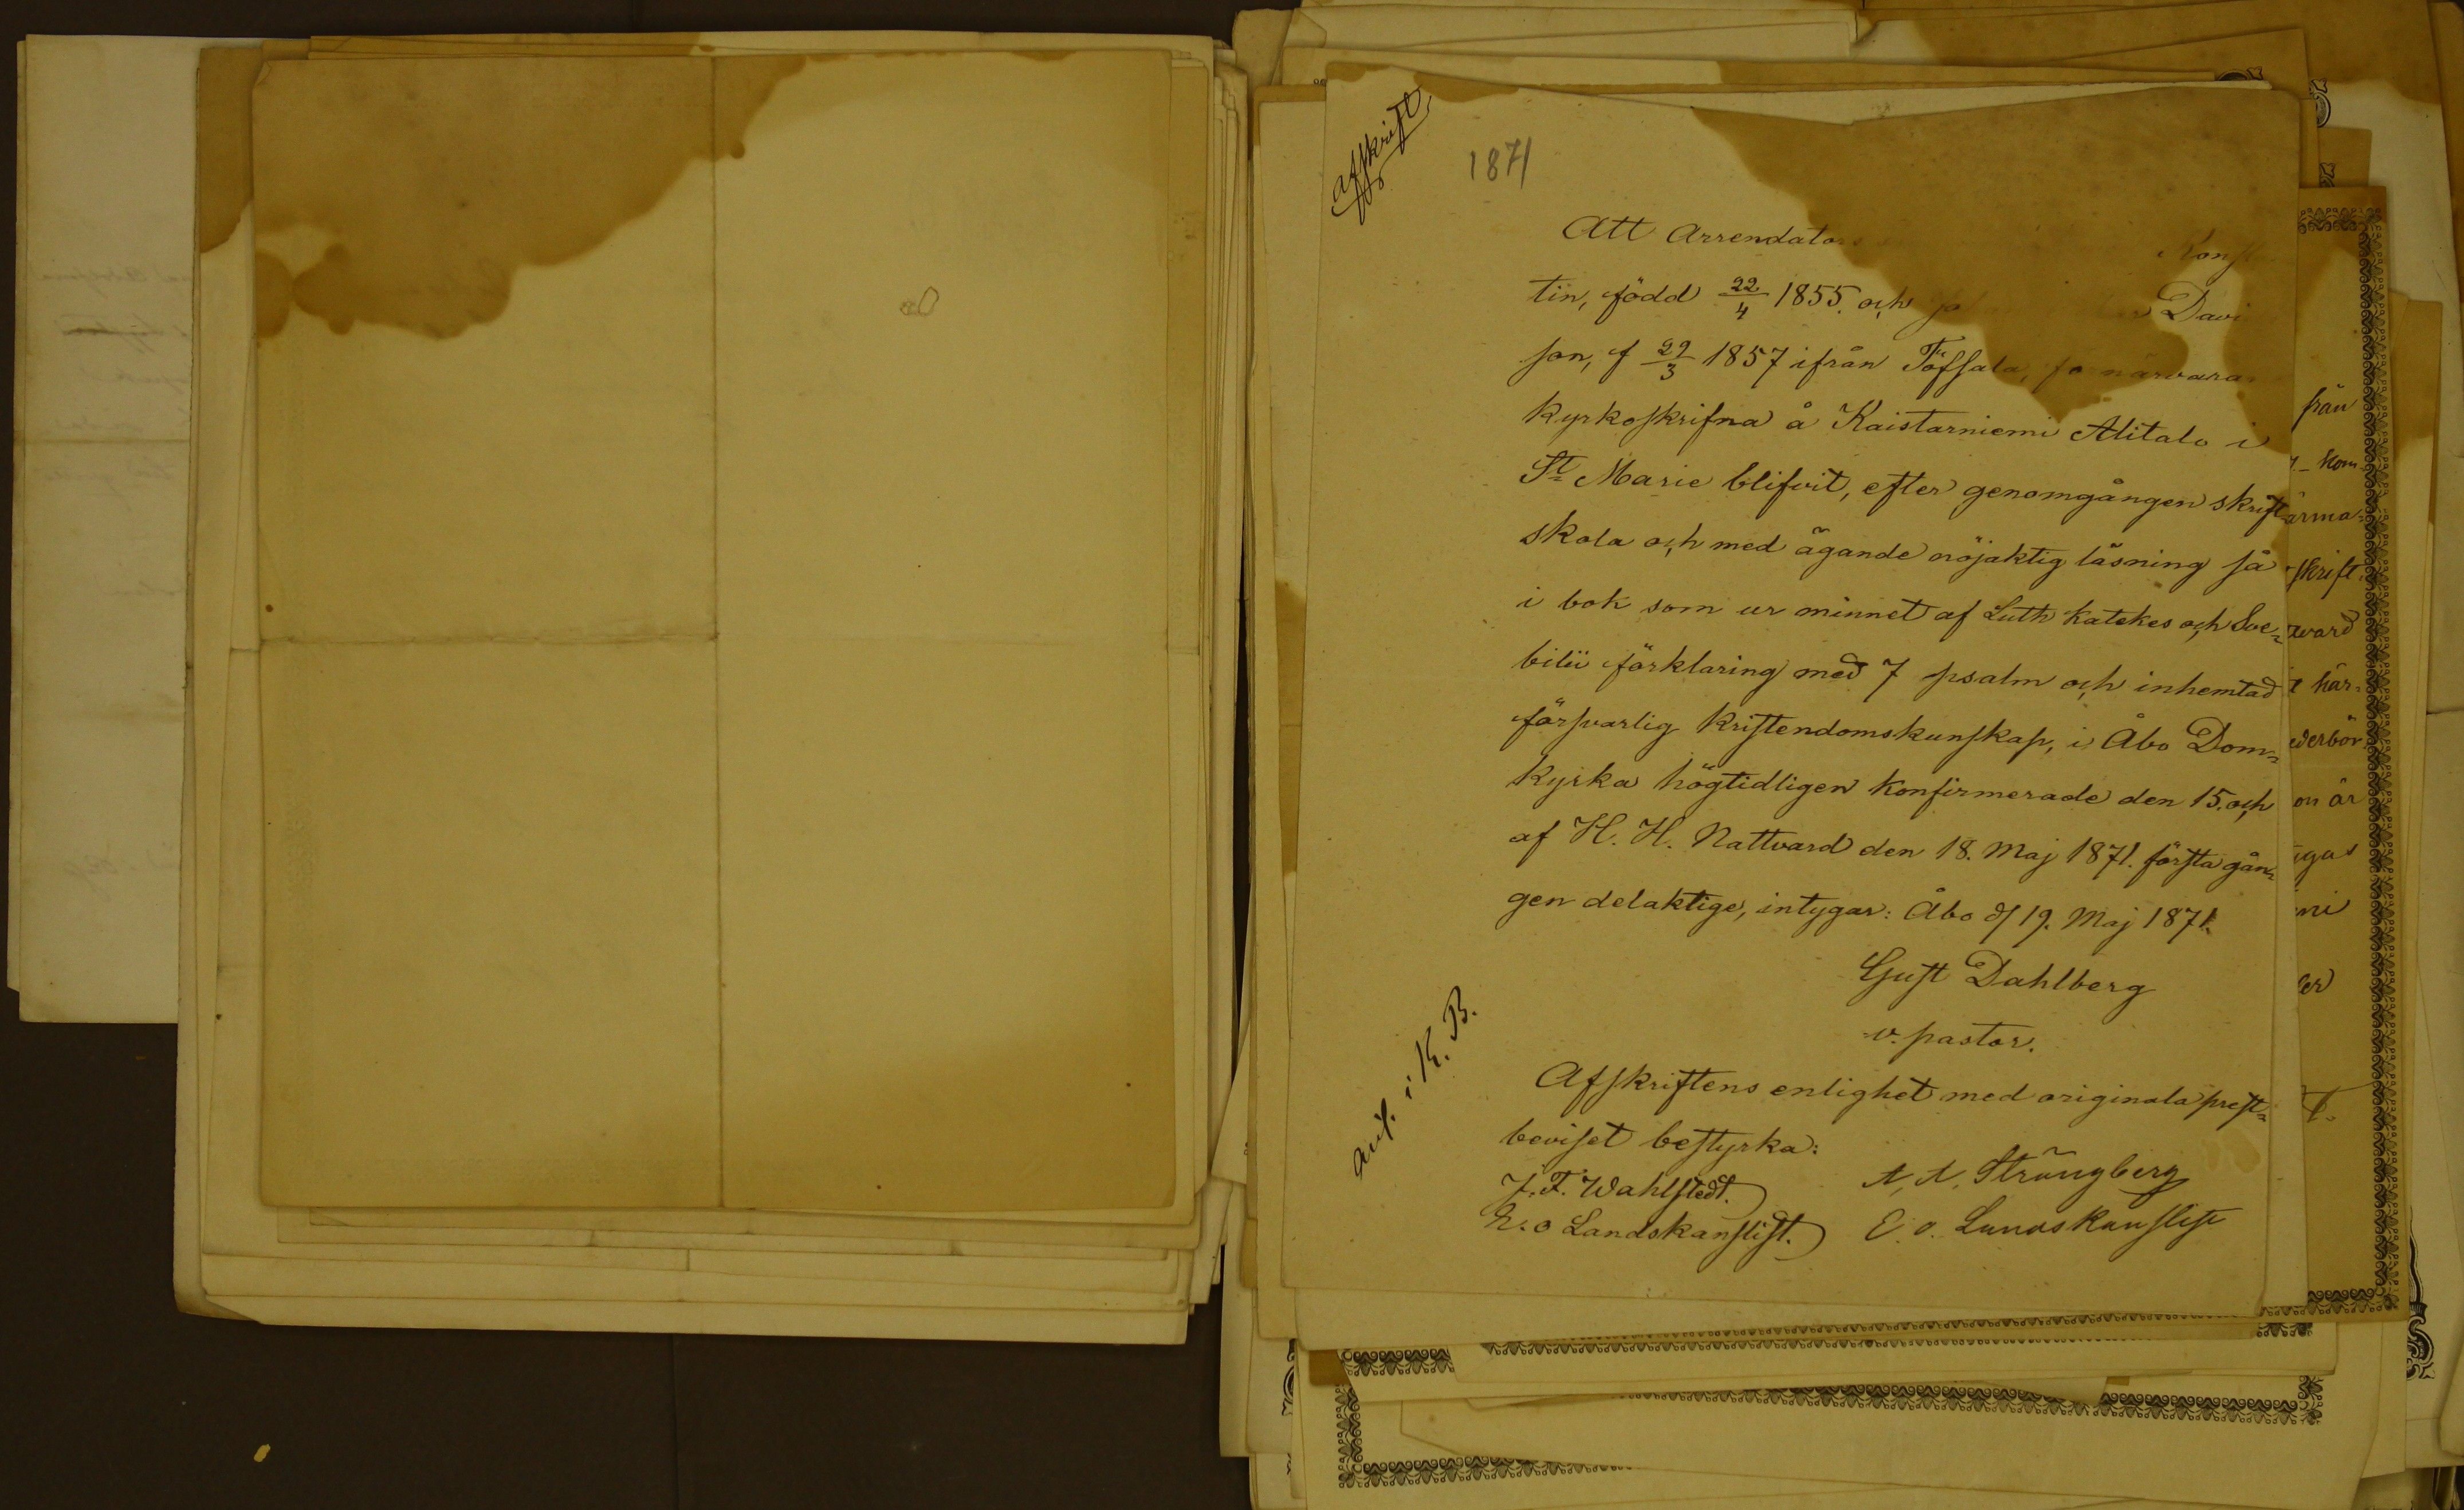 Afskrift
1871
Att Arrendators Konst
tin, född 22/4 1855. och Davi
son, f 29/3 1857 ifrån Töfsala, för närvara
kyrkoskrifna å Kaistarniemi Alitalo i
St Marie blifvit, efter genomgången skrift
skola och med ägande nöjaktig läsning så
i bok som ur minnet af Luth katekes och Sve=
bilii förklaring med 7 psalm och inhemtad
försvarlig kristendomskunskap, i Åbo Dom=
kyrka högtidligen konfirmerade den 15. och
af H. H. Nattvard den 18. Maj 1871. första gån=
gen delaktige, intygar: Åbo d/ 19. Maj 1871.
Gust Dahlberg
v. pastor.
Ant. i K. B.
Afskriftens enlighet med originala prest=
beviset bestyrka:
J. F. Wahlstedt. A. A. Strångberg
E. o Landskanslist. E. o. Landskanslist
från
kom
ärma=
skrift
tvard
t här=
ederbör
on är
igas
mi
er